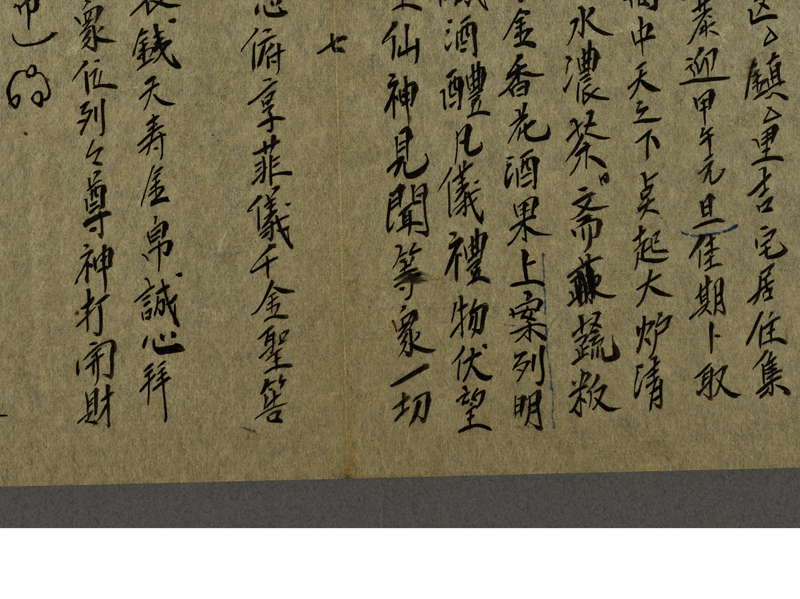 鎮々里吉宅居住集
迎甲午元旦佳期卜取
中天之下点起大炉清
水濃茶斋蔬粄
金香花酒果上案列明
酒醴凡儀禮物伏望
仙神見聞等衆一切
七
俯享菲儀千金聖筶
錢天寿金帛誠心拜
衆位列々尊神打開財